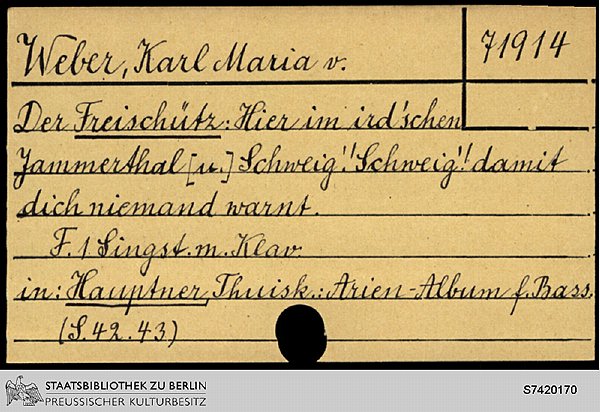 Weber, Karl Maria v.
71914
Der Freischütz: Hier im ird'schen
Jammerthal [u.] Schweig'! Schweig'! damit
dich niemand warnt.
F. 1 Singst. m. Klav.
in: Hauptner, Thuisk.: Arien-Album f. Bass.
(S. 42. 43)
STAATSBIBLIOTHEK ZU BERLIN
PREUSSISCHER KULTURBESITZ
S7420170